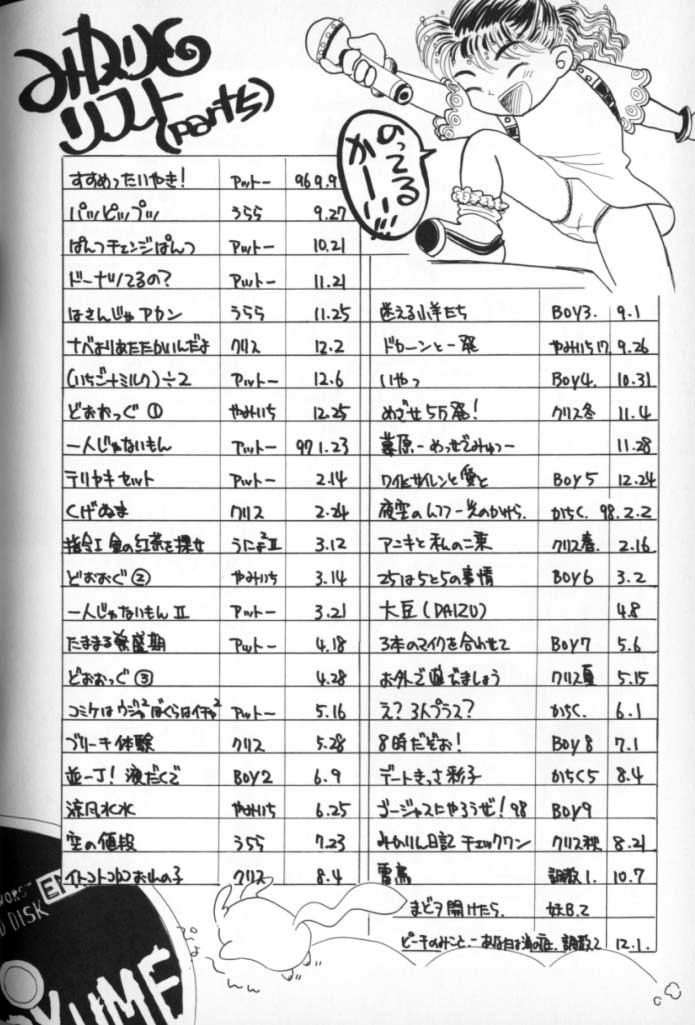 みかりんの
リスト(part5)
のってる
かーい!!
すすめったいやき! アットー 96 9.9
パッピップッ うらら 9.27
ぱんつチェンジぱんつ アットー 10.21
ドーナノてるの? アットー 11.21
はさんじゃアカン うらら 11.25
ナベよりあたたかいんだよ クリス 12.2
(いちご+ミルク)÷2 アットー 12.6
どおおっぐ① やみいち 12.25
一人じゃないもん アットー 97 1.23
テリヤキセット アットー 2.14
くげぬま クリス 2.24
指令I 金の紅茶を探せ 3.12
どおおぐ② やみいち 3.14
一人じゃないもんⅡ アットー 3.21
たままる繁盛期 アットー 4.18
どおおっぐ③ 4.28
コミケはウジャ²ぼくらはイチャ² アットー 5.16
ブリーチ体験 クリス 5.28
並一丁!液だくで BOY2 6.9
涼風水水 やみいち 6.25
空の値段 うらら 7.23
イトコトコトコお山の子 クリス 8.4
迷える小羊たち BOY3. 9.1
ドカーンと一発 やみいち17 9.26
いやっ BOY4. 10.31
めざせ5万発! クリス冬 11.4
草原-めっせでみゅっ- 11.28
ワイルドサイレンと愛と BOY5 12.24
夜空の 光のかけら. かちく. 98.2.2
アニキと私の二乗 クリス春. 2.16
25は5と5の事情 BOY6 3.2
大豆(DAIZU) 4.8
3本のマイクを合わせて BOY7 5.6
お外で でましょう クリス夏 5.15
え?3人プラス? かちく. 6.1
8時だぞお! BOY8 7.1
デートきっさ彩子 かちく5 8.4
ゴージャスにやろうぜ!98 BOY9
みかりん日記 チェックワン クリス秋 8.21
雷鳥 調教1. 10.7
まどヲ開けたら. 妹B.2
ピーチのみこと.-あなたは 調教2 12.1.
WORST
DISK
EP
YUME